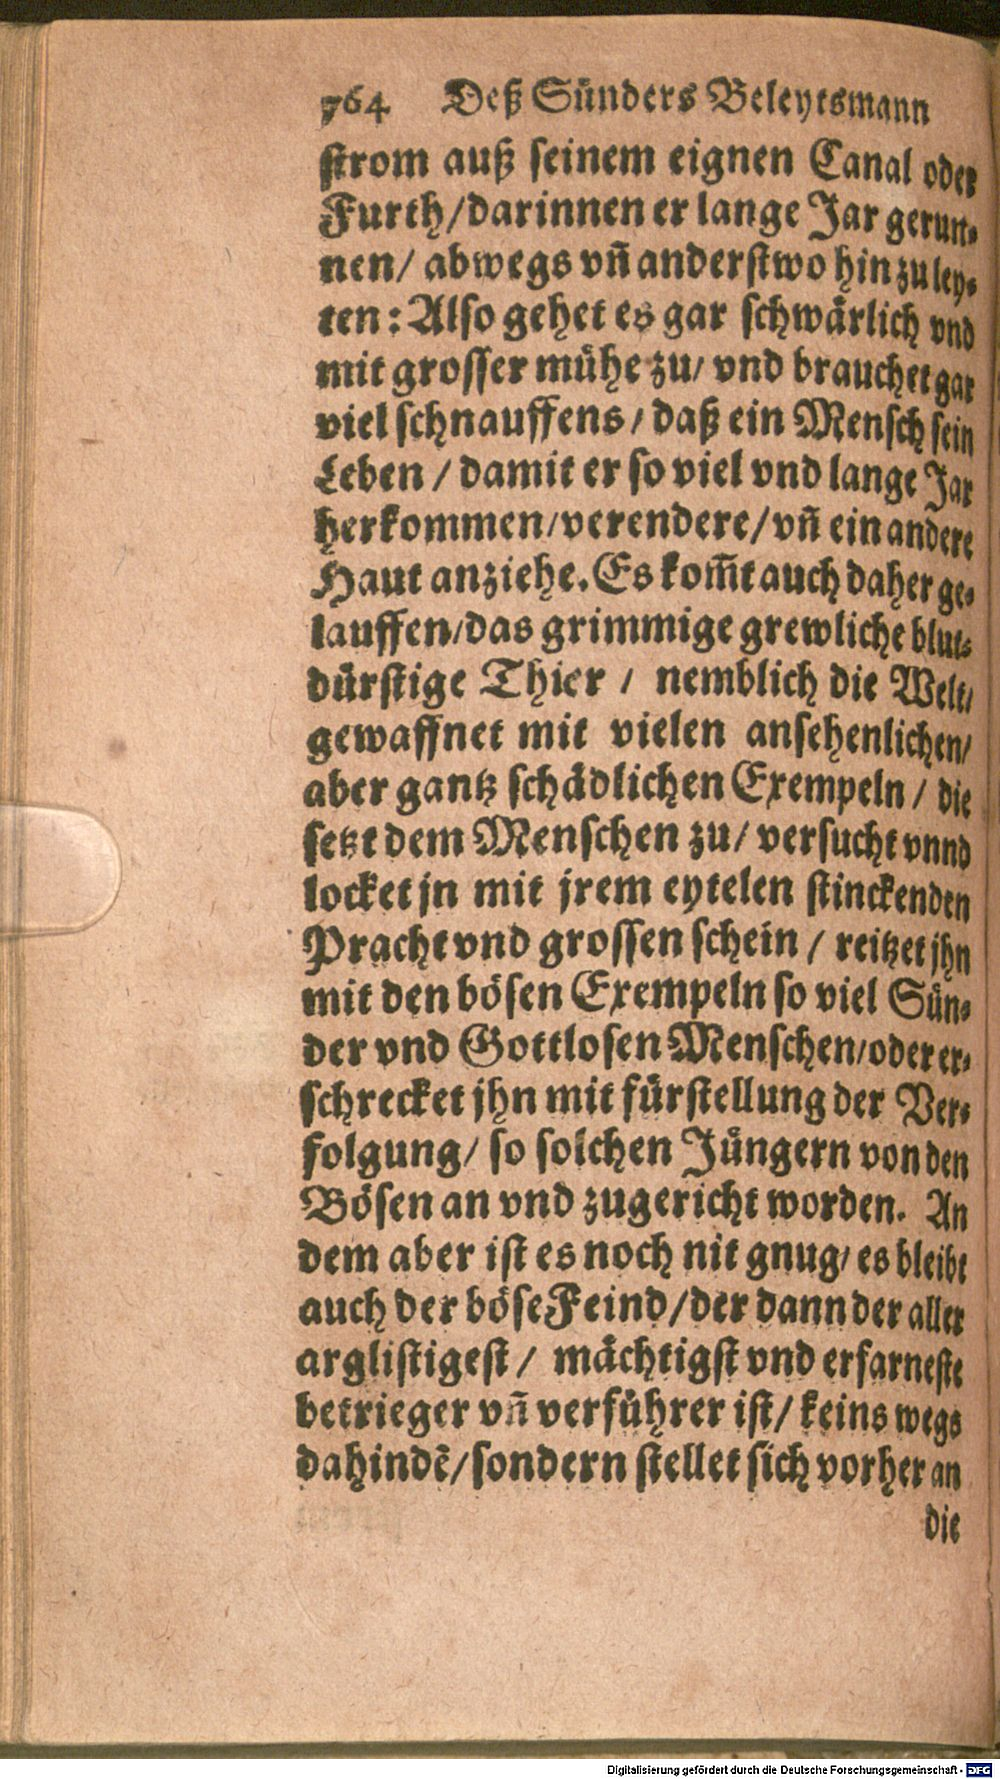 764 Deß Sünders Beleytsmann
strom auß seinem eignen Canal oder
Furth/darinnen er lange Jar gerun-
nen/ abwegs vñ anderstwo hin zu ley-
ten: Also gehet es gar schwärlich vnd
mit grosser mühe zu/ vnd brauchet gar
viel schnauffens/ daß ein Mensch sein
Leben / damit er so viel vnd lange Jar
herkommen/verendere/vñ ein andere
Haut anziehe. Es kom̃t auch daher ge-
lauffen/das grimmige grewliche blut-
dürstige Thier / nemblich die Welt/
gewaffnet mit vielen ansehenlichen/
aber gantz schädlichen Exempeln / die
setzt dem Menschen zu/ versucht vnnd
locket jn mit jrem eytelen stinckenden
Pracht vnd grossen schein / reitzet jhn
mit den bösen Exempeln so viel Sün-
der vnd Gottlosen Menschen/oder er-
schrecket jhn mit fürstellung der Ver-
folgung/ so solchen Jüngern von den
Bösen an vnd zugericht worden. An
dem aber ist es noch nit gnug/ es bleibt
auch der böse Feind/der dann der aller
arglistigest/ mächtigst vnd erfarneste
betrieger vñ verführer ist/ keins wegs
dahindẽ/sondern stellet sich vorher an
die
Digitalisierung gefördert durch die Deutsche Forschungsgemeinschaft - DFG